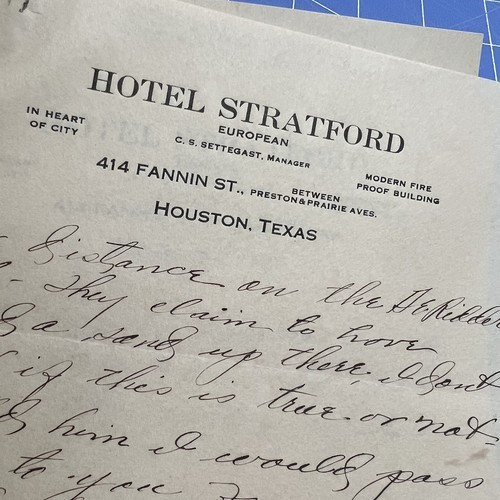 HOTEL STRATFORD
EUROPEAN
C. S. SETTEGAST, MANAGER
IN HEART
OF CITY
MODERN FIRE
PROOF BUILDING
414 FANNIN ST., BETWEEN
PRESTON & PRAIRIE AVES.
HOUSTON, TEXAS
Distance on the DeRidder
They claim to have
a sand up there; I dont
if this is true or not-
him I would pass
to you